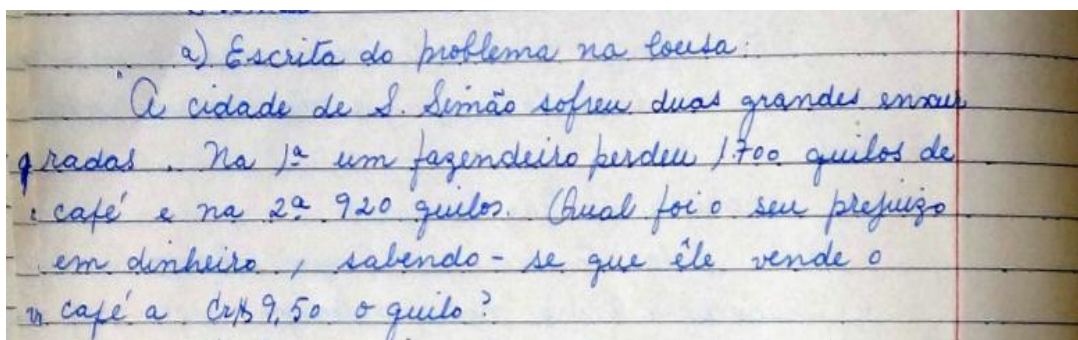 a) Escrita do problema na lousa:
"A cidade de S. Simão sofreu duas grandes enxur
radas. Na 1ª um fazendeiro perdeu 1.700 quilos de
café e na 2ª 920 quilos. Qual foi o seu prejuizo
em dinheiro, sabendo-se que êle vende o
café a Cr$ 9,50 o quilo?